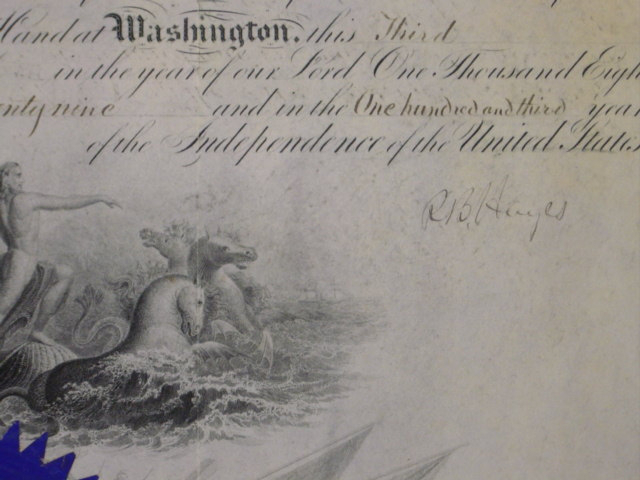 Hand at Washington, this Third
in the year of our Lord One Thousand Eigh
enty nine and in the One hundred and third year
of the Independence of the United States
R.B. Hayes